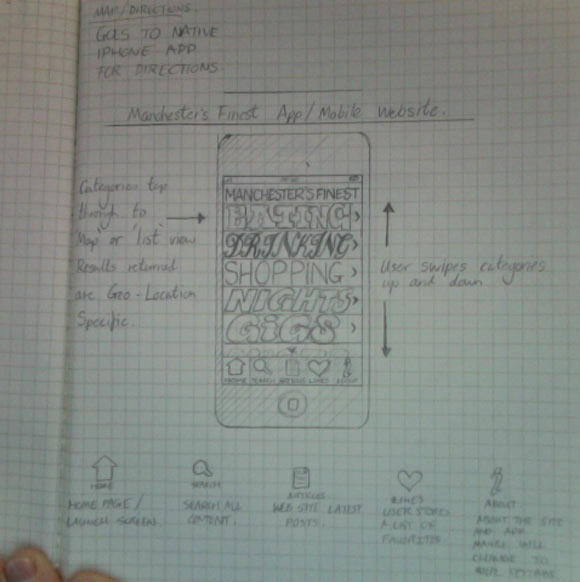 MAP/DIRECTIONS.
GOES TO NATIVE
IPHONE APP
FOR DIRECTIONS
Manchester's Finest App/Mobile Website.
Categories tap
through to
Map or 'list' view
Results returned
are Geo-Location
Specific.
MANCHESTER'S FINEST
EATING
DRINKING
SHOPPING
NIGHTS
GIGS
HOME SEARCH ARTICLES LIKES ABOUT
User swipes categories
up and down
HOME
HOME PAGE /
LAUNCH SCREEN.
SEARCH
SEARCH ALL
CONTENT.
ARTICLES
WEB SITE LATEST
POSTS.
LIKES
USER STORES
A LIST OF
FAVORITES
ABOUT
ABOUT THE SITE
AND APP
WILL
CHANGE TO